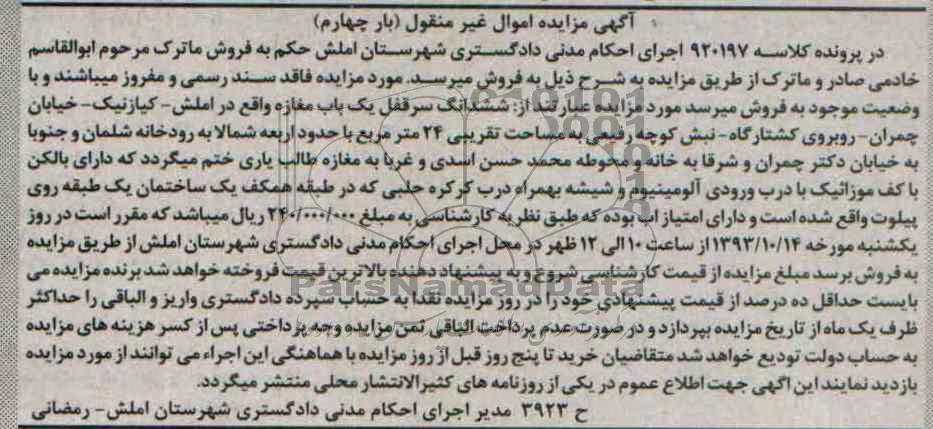 آگهی مزایده اموال غیر منقول (بار چهارم)
در پرونده کلاسه ۹۲۰۱۹۷ اجرای احکام مدنی دادگستری شهرستان املش حکم به فروش ماترک مرحوم ابوالقاسم
خادمی صادر و ماترک از طریق مزایده به شرح ذیل به فروش میرسد. مورد مزایده فاقد سند رسمی و مفروز میباشند و با
وضعیت موجود به فروش میرسد مورد مزایده عبارتند از: ششدانگ سرقفل یک باب مغازه واقع در املش- کیازنیک- خیابان
چمران- روبروی کشتارگاه- نبش کوچه رفیعی به مساحت تقریبی ۲۴ متر مربع با حدود اربعه شمالا به رودخانه شلمان و جنوبا
به خیابان دکتر چمران و شرقا به خانه و محوطه محمد حسن اسدی و غربا به مغازه طالب یاری ختم میگردد که دارای بالکن
با کف موزائیک با درب ورودی آلومینیوم و شیشه بهمراه درب کرکره حلبی که در طبقه همکف یک ساختمان یک طبقه روی
پیلوت واقع شده است و دارای امتیاز اب بوده که طبق نظریه کارشناسی به مبلغ ۲۴۰/۰۰۰/۰۰۰ ریال میباشد که مقرر است در روز
یکشنبه مورخه ۱۳۹۳/۱۰/۱۴ از ساعت ۱۰ الی ۱۲ ظهر در محل اجرای احکام مدنی دادگستری شهرستان املش از طریق مزایده
به فروش برسد مبلغ مزایده از قیمت کارشناسی شروع و به پیشنهاد دهنده بالاترین قیمت فروخته خواهد شد برنده مزایده می
بایست حداقل ده درصد از قیمت پیشنهادی خود را در روز مزایده نقدا به حساب سپرده دادگستری واریز و الباقی را حداکثر
ظرف یک ماه از تاریخ مزایده بپردازد و در صورت عدم پرداخت الباقی ثمن مزایده وجه پرداختی پس از کسر هزینه های مزایده
به حساب دولت تودیع خواهد شد متقاضیان خرید تا پنج روز قبل از روز مزایده با هماهنگی این اجراء می توانند از مورد مزایده
بازدید نمایند این اگهی جهت اطلاع عموم در یکی از روزنامه های کثیرالانتشار محلی منتشر میگردد.
ح ۳۹۲۳ مدیر اجرای احکام مدنی دادگستری شهرستان املش- رمضانی
ParsNamadData